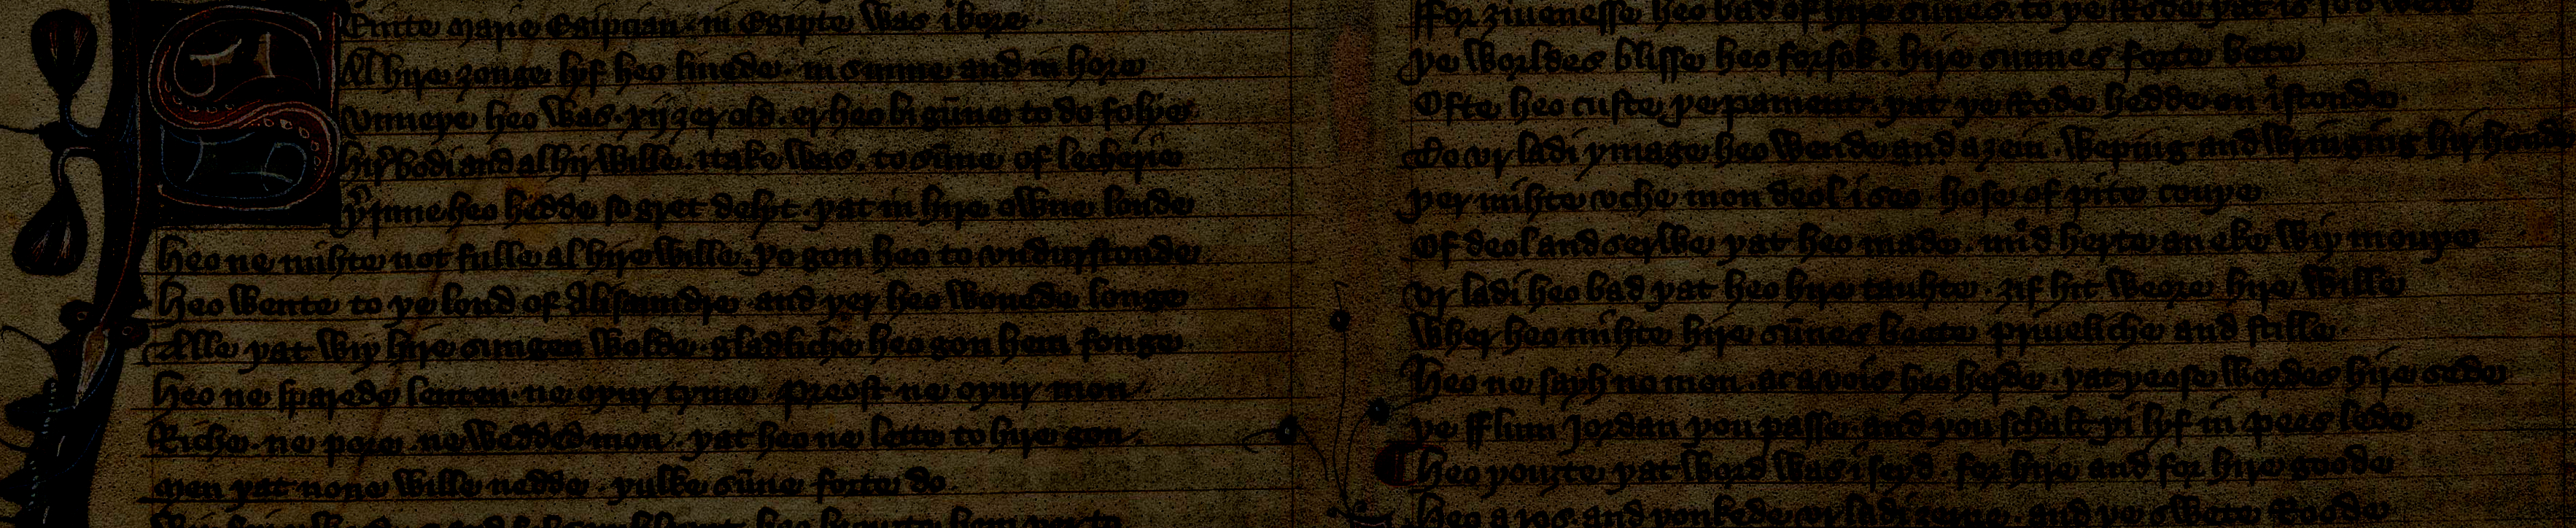 Seinte Marie Egipcian · in Egipte was ibore ·
Al hire ȝonge lyf heo liuede · in sunne and in hore
Vnneþe heo was · xij ȝer old · er heo bigūne to do folye ·
hir bodi and al hir wille · itake was · to sūne of lecherie
Þerinne heo hedde so gret delyt · þat in hire owne londe
Heo ne mihte not fulle al hire wille · þo gon heo to vndurstonde
Heo wente to þe lond of Alisaundre · and þer heo wonede longe
Alle þat wiþ hire sungen wolde · gladliche heo gon hem fonge ·
Heo ne sparede lenten · ne oþur tyme · preost ne oþur mon
Riche · ne pore · ne wedded mon · þat heo ne lette to hire gon ·
Men þat none wille nedde · þulke sūne forte do ·
fforȝiuenesse heo bad of hire sūnes · to þe Rode þat is so
þe worldes blisse heo forsok · hire sunnes forte bete
Ofte heo custe þe pament · þat þe Rode hedde on istonde ·
To vr ladi ymage heo wende and aȝein · weping and wringing hir hond
Þer mihte vche mon deol iseo · hose of pite couþe
Of deol and serwe þat heo made · mid herte an eke wiþ mouþe
Vr ladi heo bad þat heo hire tauhte · ȝif hit weore hire wille
Wher heo mihte hire sūnes beete priueliche and stille ·
Heo ne sayh no mon · ac a vois heo herde · þat þeose wordes hire sede
Þe fflum Jordan þou passe · and þou schalt þi lyf in pees lede
Heo þouȝte þat word was iseyd · for hire and for hire goode
Heo aros · and þonkede vr ladi ȝeorne · and þe swete Roode